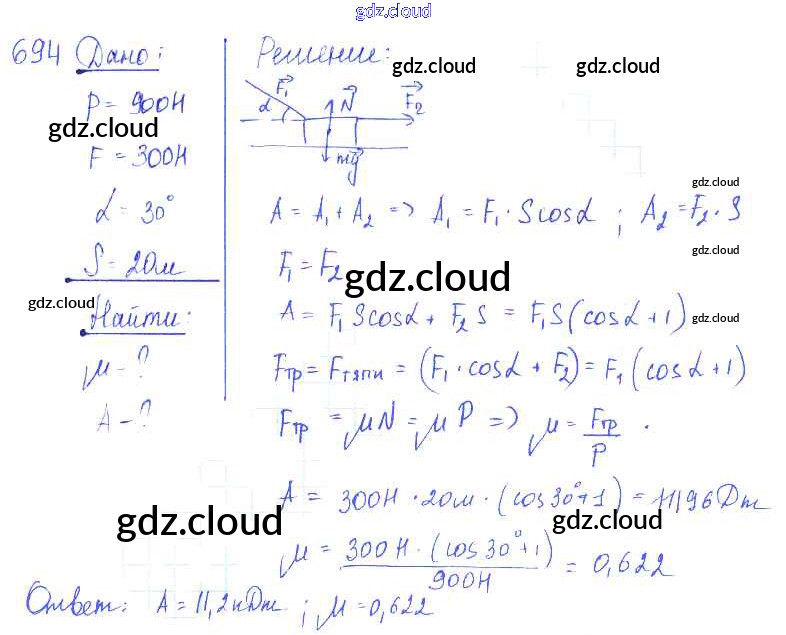 gdz.cloud
694 Дано:
P = 900Н
gdz.cloud
F = 300Н
α = 30°
S = 20м
gdz.cloud
Найти:
μ - ?
A - ?
Решение:
gdz.cloud gdz.cloud
F₁ α N F₂
mg
gdz.cloud
A = A₁ + A₂ => A₁ = F₁ · S cosα ; A₂ = F₂ · S
gdz.cloud
F₁ = F₂
gdz.cloud
A = F₁ S cosα + F₂ S = F₁S (cosα + 1)
gdz.cloud
Fтр = Fтяги = (F₁ · cosα + F₂) = F₁ (cosα + 1)
Fтр = μN = μP => μ = Fтр/P .
A = 300Н · 20м · (cos30° + 1) = 11196Дж
gdz.cloud gdz.cloud
μ = 300Н · (cos30° + 1)/900Н = 0,622
Ответ: A = 11,2кДж ; μ = 0,622